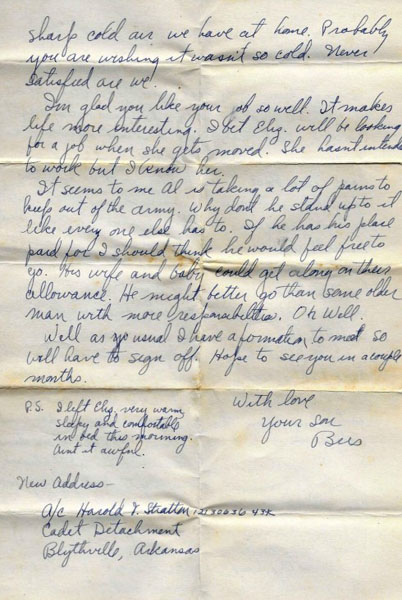 sharp cold air we have at home. Probably
you are wishing it wasn't so cold. Never
satisfied are we.
I'm glad you like your job so well. It makes
life more interesting. I bet Elig. will be looking
for a job when she gets moved. She hasn't intended
to work but I know her.
It seems to me Al is taking a lot of pains to
keep out of the army. Why don't he stand up to it
like every one else has to. If he has his place
paid for I should think he would feel free to
go. His wife and baby could get along on their
allowance. He might better go than some older
man with more responsibilities. Oh Well.
Well as usual I have a formation to meet so
will have to sign off. Hope to see you in a couple
months.
With love
Your son
P.S. I left Elig. very warm,
sleepy and comfortable
in bed this morning.
Aint it awful.
New Address—
A/C Harold V. Stratton
Cadet Detachment
Blythville, Arkansas